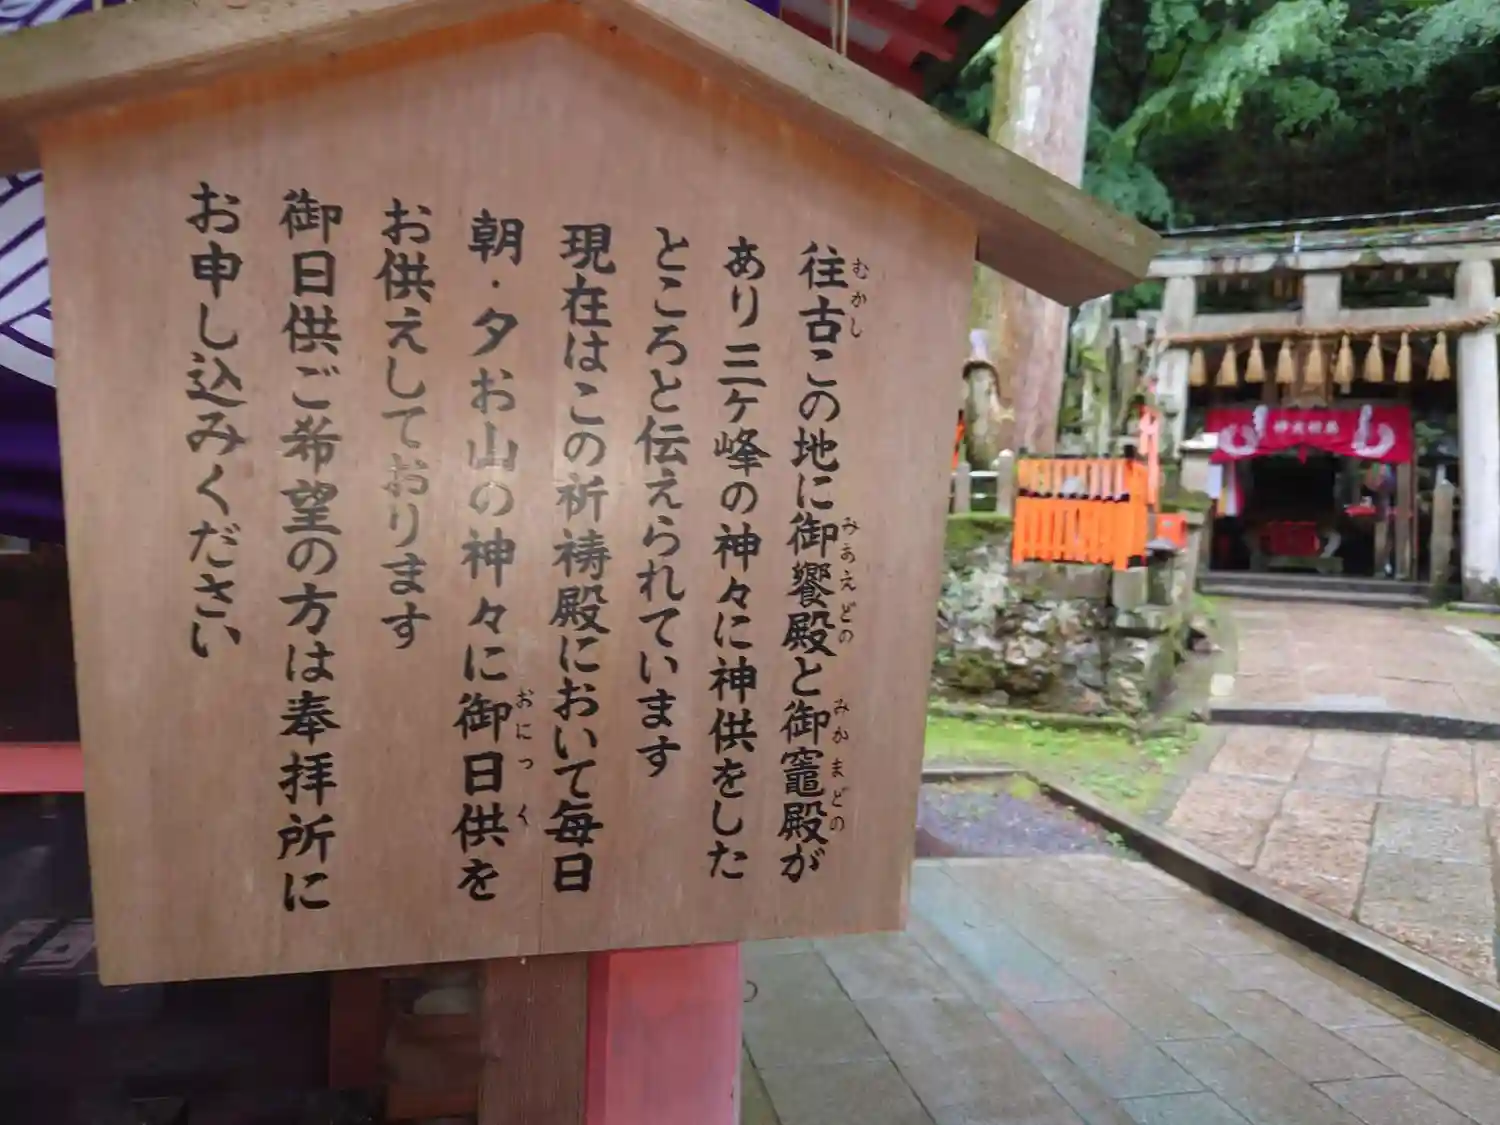 往古この地に御饗殿と御竈殿が
むかし
みあえどの
みかまどの
あり三ヶ峰の神々に神供をした
ところと伝えられています
現在はこの祈祷殿において毎日
朝・夕お山の神々に御日供を
おにっく
お供えしております
御日供ご希望の方は奉拝所に
お申し込みください